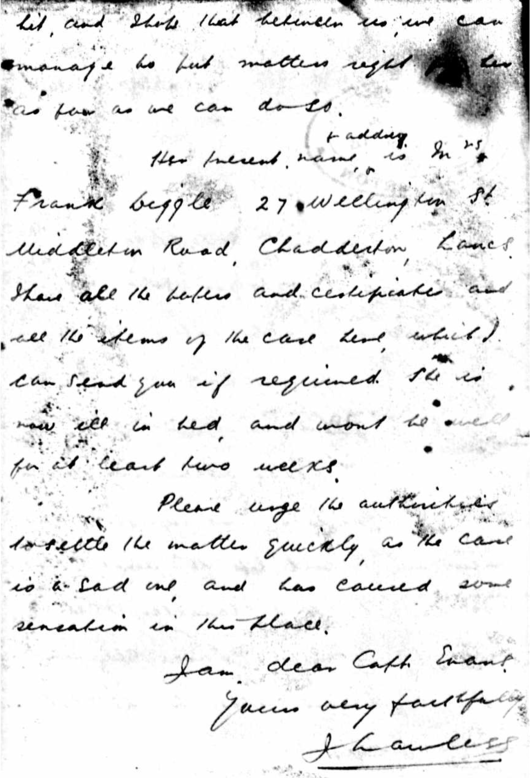 bit, and I hope that between us, we can
manage to put matters right for her
as far as we can do so.
& address
Her present name, is Mrs
Frank Wiggle 27 Wellington St
Middleton Road, Chadderton, Lancs.
I have all the papers and certificates and
all the items of the case here, which I
can send you if required. She is
now ill in bed, and wont be well
for at least two weeks.
Please urge the authorities
to settle the matter quickly, as the case
is a sad one, and has caused some
sensation in this place.
I am, dear Capt Evans.
Yours very faithfully
J Lawless